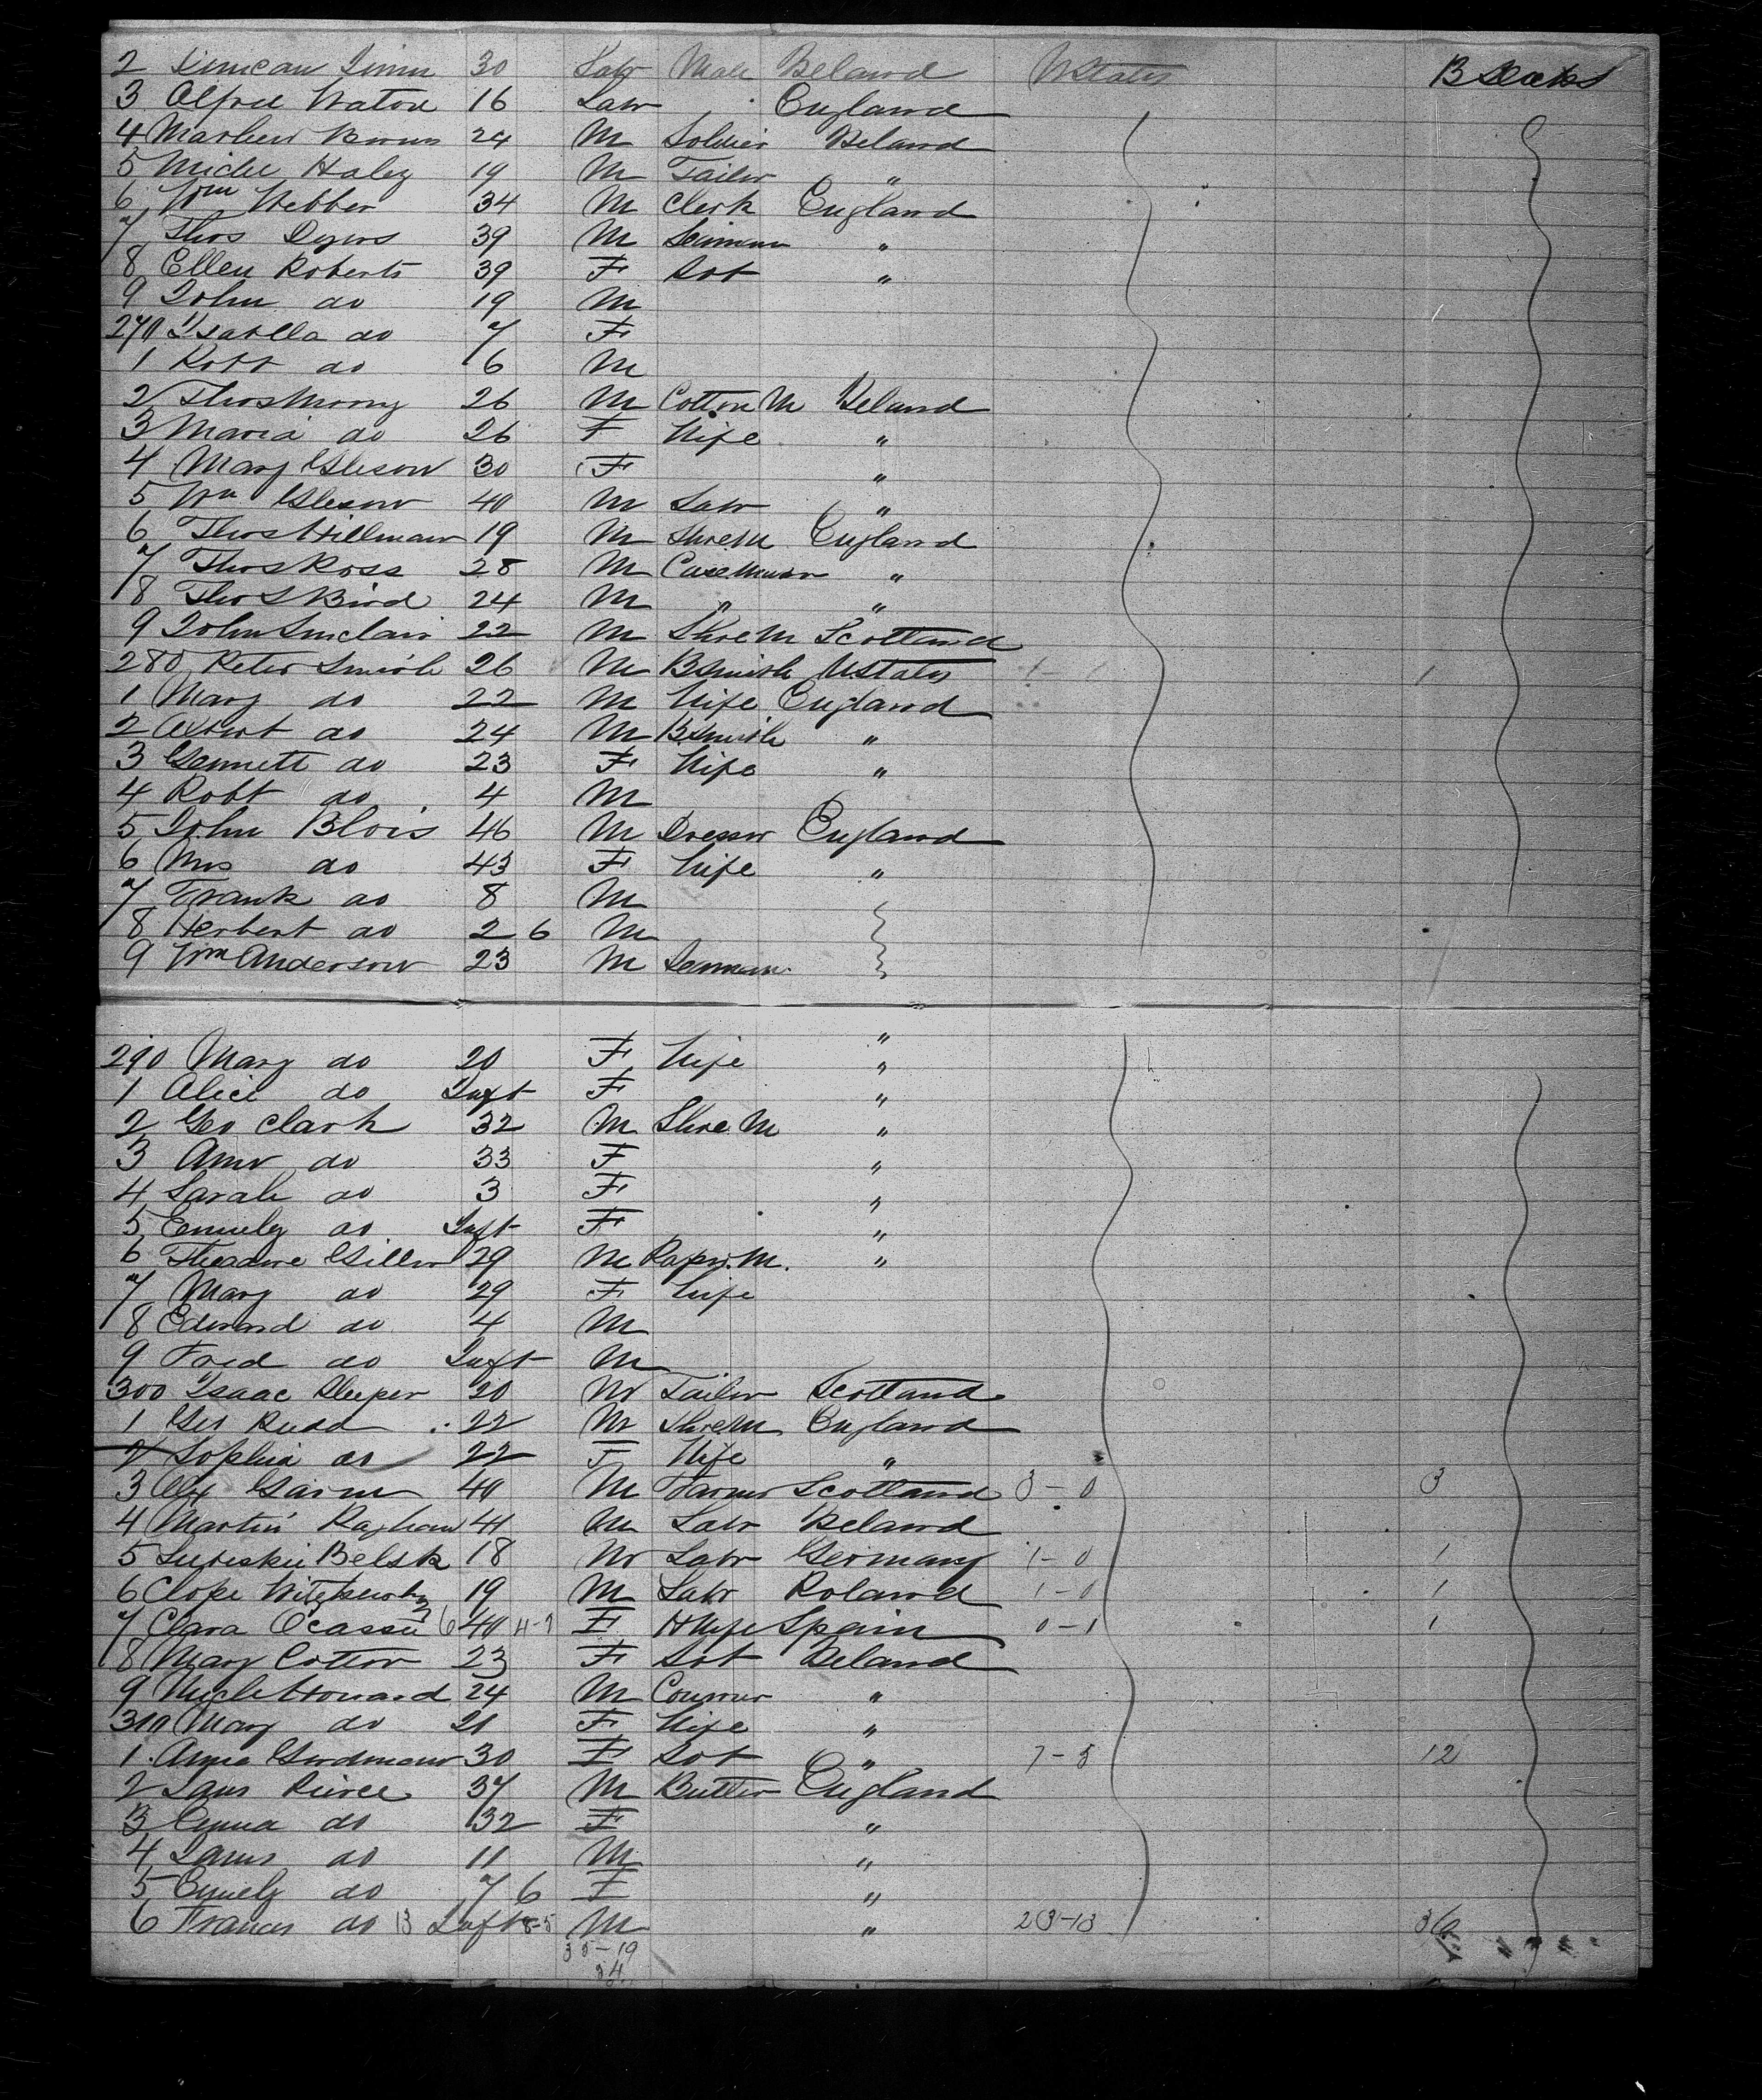 2 Duncan 30 Labr Male Ireland UStates B Decks
3 Alfred Watson 16 Labr England
4 24 M Soldier Ireland
5 Michl Haley 19 M Tailor "
6 Wm Webber 34 M Clerk England
7 Thos 39 M "
8 Ellen Roberts 39 F Sot "
9 John do 19 M
270 Isabella do 7 F
1 Robt do 6 M
2 Thos 26 M Cotton M Ireland
3 Maria do 26 F Wife "
4 Mary Gleson 30 F "
5 Wm Gleson 40 M Labr "
6 Thos Hillman 19 M ShoeM England
7 Thos Ross 28 M "
8 Thos Bird 24 M " "
9 John Sinclair 22 M ShoeM Scotland
280 Peter Smith 26 M BSmith UStates 1- 1
1 Mary do 22 M Wife England
2 do 24 M BSmith "
3 Gennett do 23 F Wife "
4 Robt do 4 M
5 John Blois 46 M England
6 Mrs do 43 F Wife "
7 Frank do 8 M
8 Herbert do 2 6 M
9 Wm Anderson 23 M
"
290 Mary do 20 F Wife "
1 Alice do Inft F "
2 Geo Clark 32 M Shoe M "
3 Ann do 33 F "
4 Sarah do 3 F "
5 Emily do Inft F "
6 Theodore 29 M Paper.M. "
7 Mary do 29 F Wife
8 Edward do 4 M
9 Fred do Inft M
300 Isaac Sleeper 20 M Tailor Scotland
1 Geo Rudd 22 M ShoeM England
2 Sophia do 22 F Wife "
3 Alex 40 M Farmer Scotland 3-0 3
4 Martin 41 M Labr Ireland
5 Belsk 18 M Labr Germany 1-0 1
6 19 M Labr Poland 1-0 1
7 Clara 6 40 F HWife Spain 0-1 1
8 Mary Cotton 23 F Sot Ireland
9 Michl Howard 24 M "
310 Mary do 21 F Wife "
1 30 F Sot " 7-5 12
2 Jams Peirce 37 M Butler England
3 Emma do 32 F "
4 Jams do 11 M "
5 Emily do 7 6 F "
6 Frances do 13 Inft 8-5 M " 23-13 36
35-19